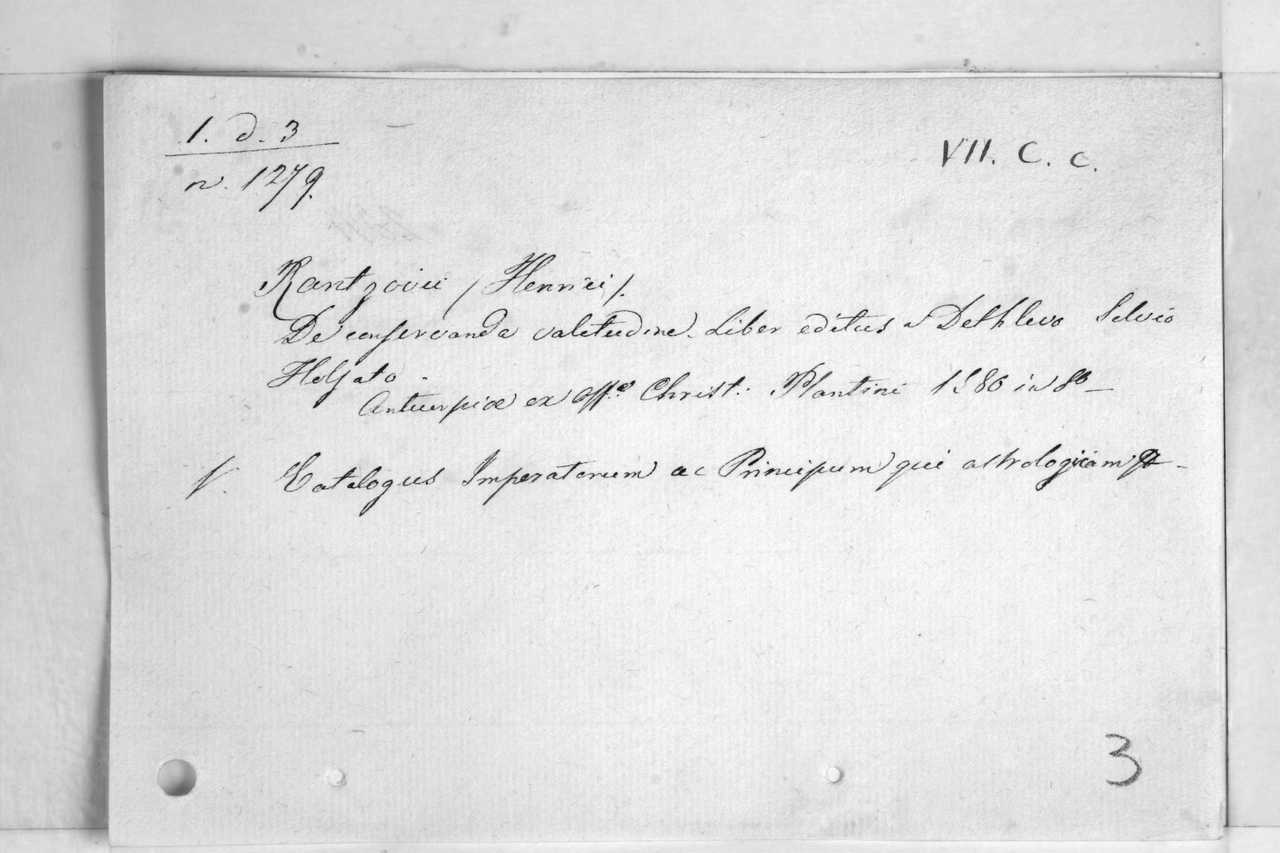 1. d. 3
n. 1279.
VII. C. c.
Rantzovii / Henrici /.
De conservanda valetudine. Liber editus a Dethlevo Silvio
Holsato.
Antuerpiæ ex offᵃ Christ. Plantini 1580 in 8º
V. Catalogus Imperatorum ac Principum qui astrologicam
3